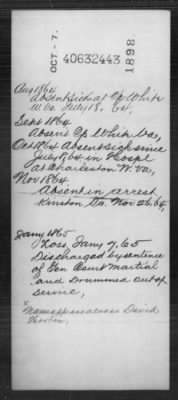 OCT - 7.
40632443
1898.
Aug 1864
Absent sick at Cp White
W. Va. July 18, 64,
Sept 1864
Absent Cp White Va.,
Oct 1864 Absent sick since
July 1864 in Hospl
at Charleston W. Va,
Nov 1864
Absent in arrest,
Winston Va. Nov 26, 64,
Jany 1865
Loss, Jany 7, 65
Discharged by sentence
of Gen Court Martial
and Drummed out of
Service,
* Name appears also as David